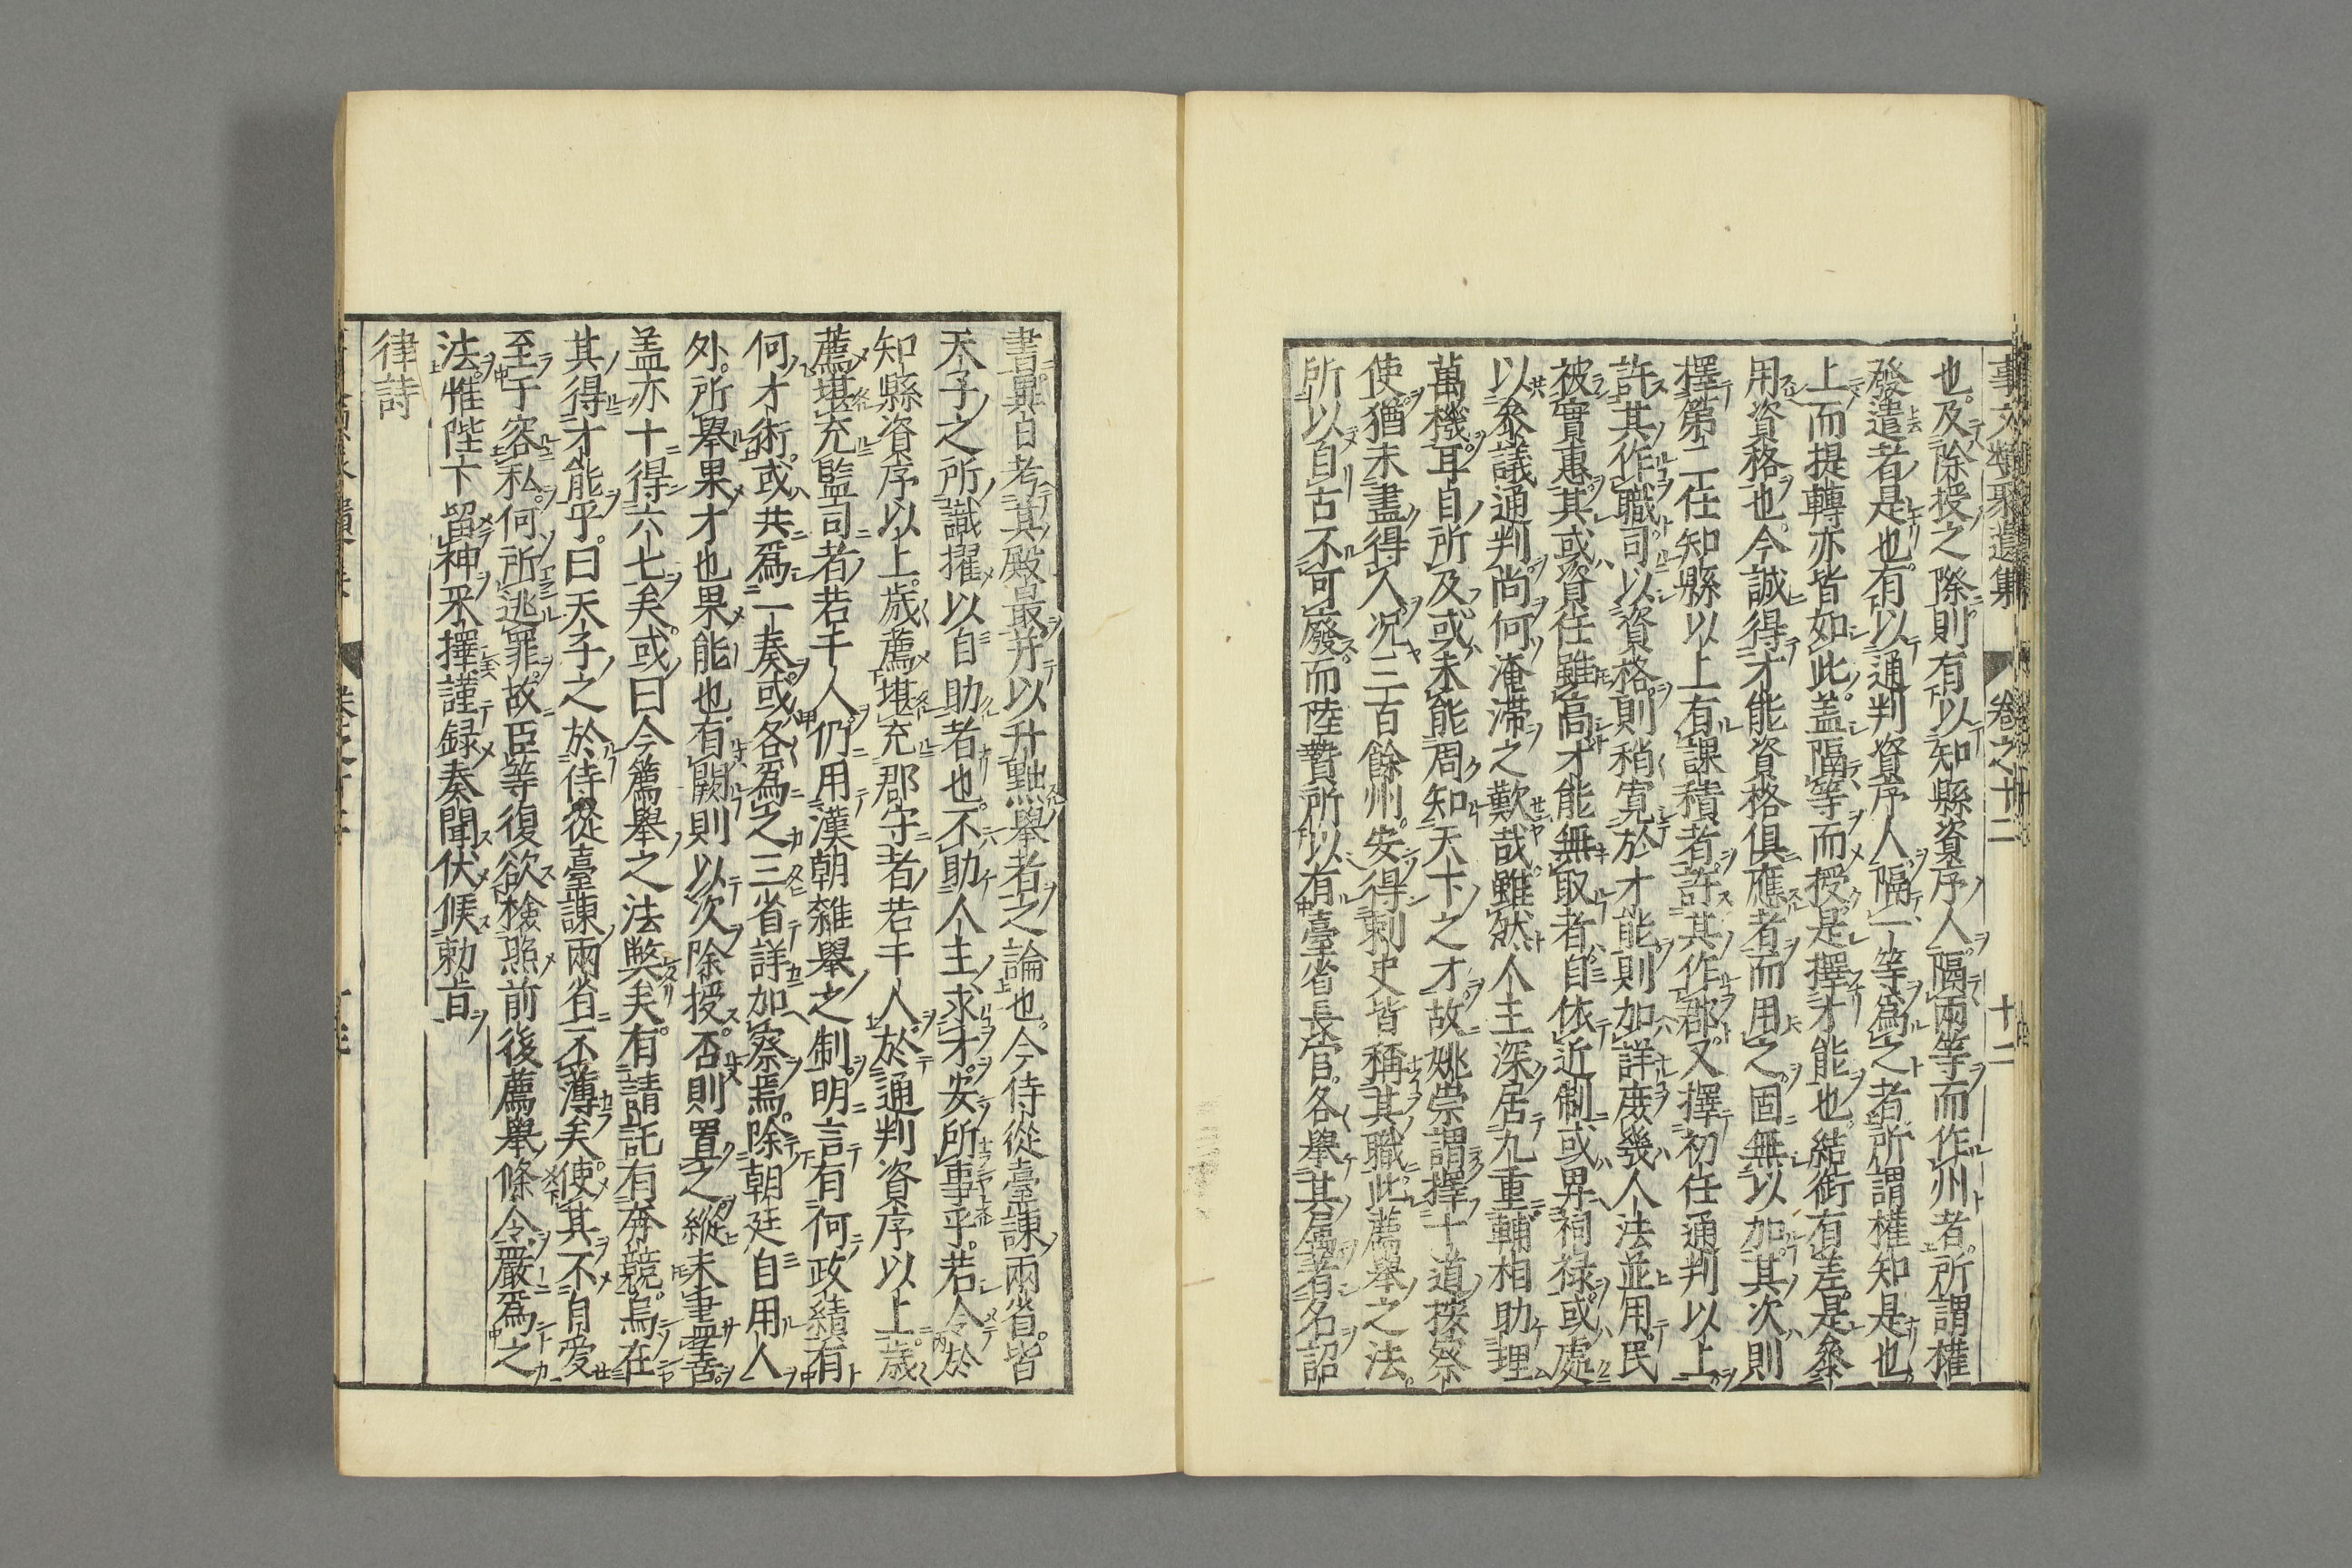 事文類聚遺集 卷之十二 十二
也。及除授之際。則有以知縣資序人。隔兩等而作州者。所謂權
發遣者是也。有以通判資序人隔一等爲之者。所謂權知是也。
上而提轉亦皆如此。盖隔等而授。是擇才能也。結銜有差。是參
用資格也。今誠得才能資格俱應者而用之。固無以加。其次則
擇第二任知縣以上有課積者。許其作郡。又擇初任通判以上
許其作職司。以資格。則稍寛於才能。則加詳。庶幾人法並用。民
被實惠。其或資任雖高。才能無取者。自依近制。或畀祠禄。或處
以參議通判。尚何淹滯之歎哉。雖然人主深居九重。輔相助理
萬機耳。目所及或未能周知天下之才。故姚崇謂擇十道按察
使。猶未盡得人。况三百餘州。安得刺史皆稱其職。此薦舉之法。
所以自古不可廢。而陸贄所以有臺省長官。各舉其屬著名詔
書。異日考其殿最。并以升黜舉者之論也。今侍從臺諫兩省。皆
天子之所識擢以自助者也。不助人主求才。安所事乎。若令於
知縣資序以上。歲薦堪充郡守者若干人。於通判資序以上。歲
薦堪充監司者若干人。仍用漢朝雜舉之制。明言有何政績有
何才術。或共爲一奏。或各爲之。三省詳加察焉。除朝廷自用人
外。所舉果才也果能也。有闕則以次除授。否則置之。縱未盡善。
盖亦十得六七矣。或曰今薦舉之法弊矣。有請託有奔競。烏在
其得才能乎。曰天子之於侍從臺諫兩省。不薄矣。使其不自愛
至于容私。何所逃罪。故臣等復欲檢照前後薦舉條令。嚴爲之
法。惟陛下留神采擇。謹録奏聞伏候勅旨
律詩